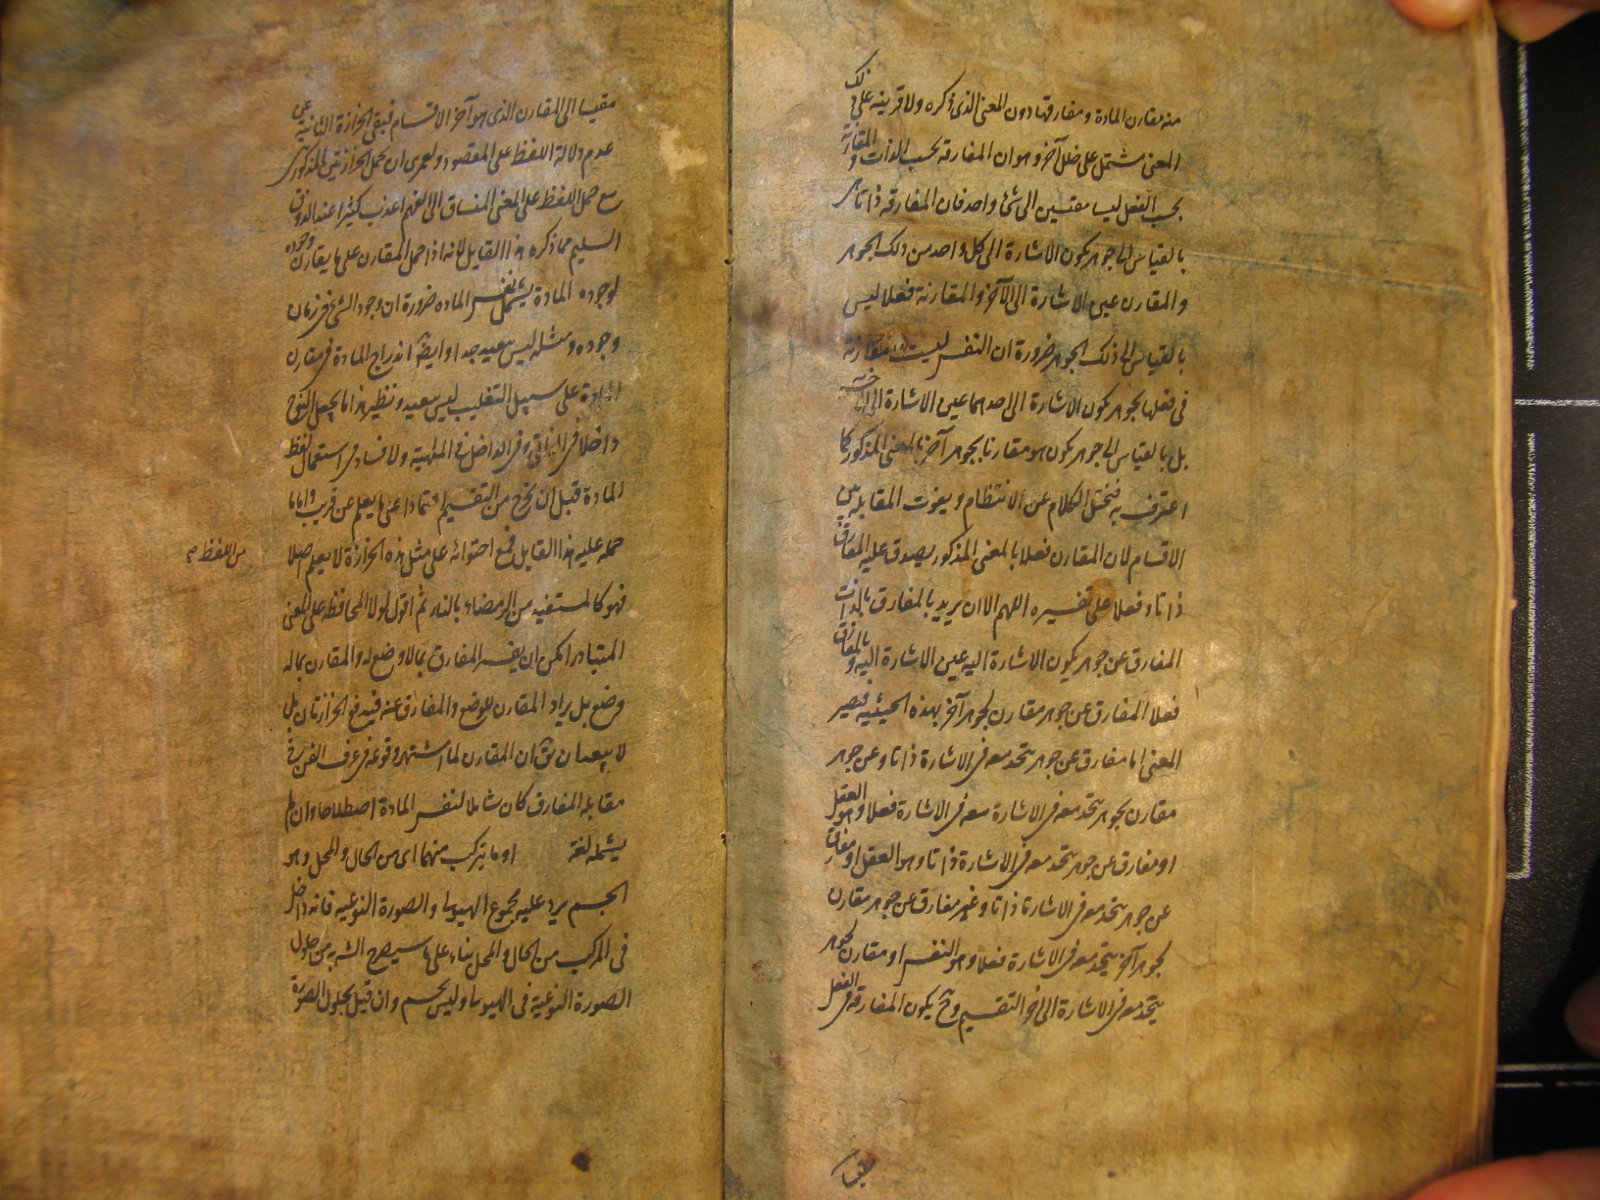 منه مقارن المادة و مفارقها دون المعنى الذى ذكره ولا قرينة على ذلك
المعنى مشتمل على خلل آخر و هو ان المفارقة بحسب الذات و المقارنة
بحسب الفعل ليسا مقيسين الى شئ واحد فان المفارقة ذاتا هى
بالقياس الى جوهر يكون الاشارة الى كل واحد من ذلك الجوهر
و المقارن عين الاشارة الى الآخر و المقارنة فعلا ليس
بالقياس الى ذلك الجوهر ضرورة ان النفس ليست مقارنة
فى فعلها لجوهر يكون الاشارة الى احدهما عين الاشارة الى
بل بالقياس الى جوهر يكون هو مقارنا لجوهر آخر بالمعنى المذكور كما
اعترف به فيختل الكلام عن الانتظام و يفوت المقابلة بين
الاقسام لان المقارن فعلا بالمعنى المذكور يصدق عليه المفارق
ذاتا و فعلا على تفسيره اللهم الا ان يريد بالمفارق بالذات
المفارق عن جوهر يكون الاشارة اليه عين الاشارة اليه و بالمفارق
فعلا المفارق عن جوهر مقارن لجوهر آخر بهذه الحيثية فيصير
المعنى اما مفارق عن جوهر يتحد معه فى الاشارة ذاتا و عن جوهر
مقارن لجوهر يتحد معه فى الاشارة معه فى الاشارة فعلا و هو العقل
او مفارق عن جوهر يتحد معه فى الاشارة ذاتا و هو العقل او مفارق
عن جوهر يتحد معه فى الاشارة ذاتا و غير مفارق عن جوهر مقارن
لجوهر آخر يتحد معه فى الاشارة فعلا و هو النفس او مقارن لجوهر
يتحد معه فى الاشارة الى آخر التقسيم و ح يكون المفارقة فى الفعل
مقيسا الى المقارن الذى هو آخر الاقسام فبقى الحزازة الثانية عن
عدم دلالة اللفظ على المقصود و لعمرى ان تحمل الحزازتين المذكورتين
مع حمل اللفظ على المعنى المنساق الى الفهم اعذب كثيرا عند الذوق
السليم مما ذكره هذا القايل لانه اذا حمل المقارن على ما يقارن وجوده
لوجوده المادة يشمل نفس المادة ضرورة ان وجود الشئ فى زمان
وجوده و مثله ليس ببعيد جدا و ايضا اندراج المادة فى مقارن
المادة على سبيل التغليب ليس ببعيد و نظير هذا ما يجعل النوع
داخلا فى الذاتى و فى الداخل فى الماهية و لا فساد فى استعمال لفظ
المادة قبل ان يخرج من التقسيم اعتمادا على ما يعلم عن قريب و اما ما
حمله عليه هذا القايل فمع احتوائه على مثل هذه الحزازة لا يعلم اصلا
من اللفظ صح
فهو كالمستغيث من الرمضاء بالنار ثم اقول لولا المحافظة على المعنى
المتبادر امكن ان يفسر المفارق بما لا وضع له و المقارن بما له
وضع بل يراد المقارن للوضع و المفارق عنه فيندفع الحزازتان بل
لا يبعد ان يق ان المقارن لما اشتهر وقوعه فى عرف الفن فى
مقابله المفارق كان شاملا لنفس المادة اصطلاحا و ان لم
يشمله لغة او ما يتركب منهما اى من الحال و المحل و هو
الجسم يرد عليه مجموع الهيولى و الصورة النوعية فانه داخل
فى المركب من الحال و المحل بناء على ما سيصرح الشريه من حلول
الصورة النوعية فى الهيولى و ليس بجسم و ان قيل بحلول الصورة